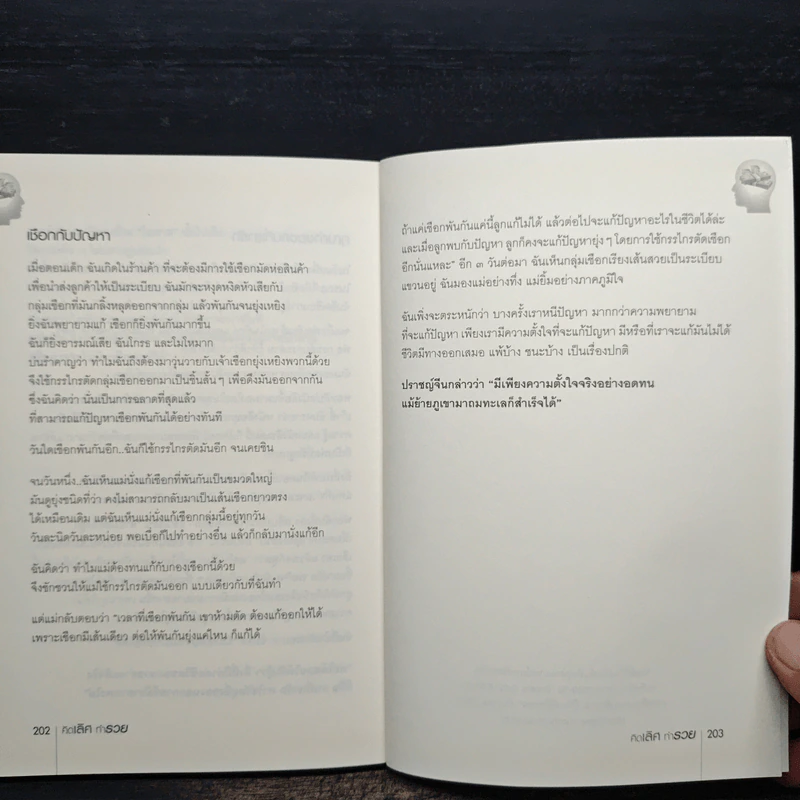 เชือกกับปัญหา
เมื่อตอนเด็ก ฉันเกิดในร้านค้า ที่จะต้องมีการใช้เชือกมัดห่อสินค้า
เพื่อนำส่งลูกค้าให้เป็นระเบียบ ฉันมักจะหงุดหงิดหัวเสียกับ
กลุ่มเชือกที่มันกลิ้งหลุดออกจากกลุ่ม แล้วพันกันจนยุ่งเหยิง
ยิ่งฉันพยายามแก้ เชือกก็ยิ่งพันกันมากขึ้น
ฉันก็ยิ่งอารมณ์เสีย ฉันโกรธ และโมโหมาก
บ่นรำคาญว่า ทำไมฉันถึงต้องมาวุ่นวายกับเจ้าเชือกยุ่งเหยิงพวกนี้ด้วย
จึงใช้กรรไกรตัดกลุ่มเชือกออกมาเป็นชิ้นสั้นๆ เพื่อดึงมันออกจากกัน
ซึ่งฉันคิดว่า นั่นเป็นการฉลาดที่สุดแล้ว
ที่สามารถแก้ปัญหาเชือกพันกันได้อย่างทันที
วันใดเชือกพันกันอีก..ฉันก็ใช้กรรไกรตัดมันอีก จนเคยชิน
จนวันหนึ่ง..ฉันเห็นแม่นั่งแก้เชือกที่พันกันเป็นขมวดใหญ่
มันดูยุ่งชนิดที่ว่า คงไม่สามารถกลับมาเป็นเส้นเชือกยาวตรง
ได้เหมือนเดิม แต่ฉันเห็นแม่นั่งแก้เชือกกลุ่มนี้อยู่ทุกวัน
วันละนิดวันละหน่อย พอเบื่อก็ไปทำอย่างอื่น แล้วก็กลับมานั่งแก้อีก
ฉันคิดว่า ทำไมแม่ต้องทนแก้กับกองเชือกนี้ด้วย
จึงชักชวนให้แม่ใช้กรรไกรตัดมันออก แบบเดียวกับที่ฉันทำ
แต่แม่กลับตอบว่า "เวลาที่เชือกพันกัน เขาห้ามตัด ต้องแก้ออกให้ได้
เพราะเชือกมีเส้นเดียว ต่อให้พันกันยุ่งแค่ไหน ก็แก้ได้
202 คิดเลิศ ทำรวย
ถ้าแค่เชือกพันกันแค่นี้ลูกแก้ไม่ได้ แล้วต่อไปจะแก้ปัญหาอะไรในชีวิตได้ล่ะ
และเมื่อลูกพบกับปัญหา ลูกก็คงจะแก้ปัญหายุ่งๆ โดยการใช้กรรไกรตัดเชือก
อีกนั่นแหละ" อีก ๓ วันต่อมา ฉันเห็นกลุ่มเชือกเรียงเส้นสวยเป็นระเบียบ
แขวนอยู่ ฉันมองแม่อย่างทึ่ง แม่ยิ้มอย่างภาคภูมิใจ
ฉันเพิ่งจะตระหนักว่า บางครั้งเราหนีปัญหา มากกว่าความพยายาม
ที่จะแก้ปัญหา เพียงเรามีความตั้งใจที่จะแก้ปัญหา มีหรือที่เราจะแก้มันไม่ได้
ชีวิตมีทางออกเสมอ แพ้บ้าง ชนะบ้าง เป็นเรื่องปกติ
ปราชญ์จีนกล่าวว่า "มีเพียงความตั้งใจจริงอย่างอดทน
แม้ย้ายภูเขามาถมทะเลก็สำเร็จได้"
คิดเลิศ ทำรวย 203